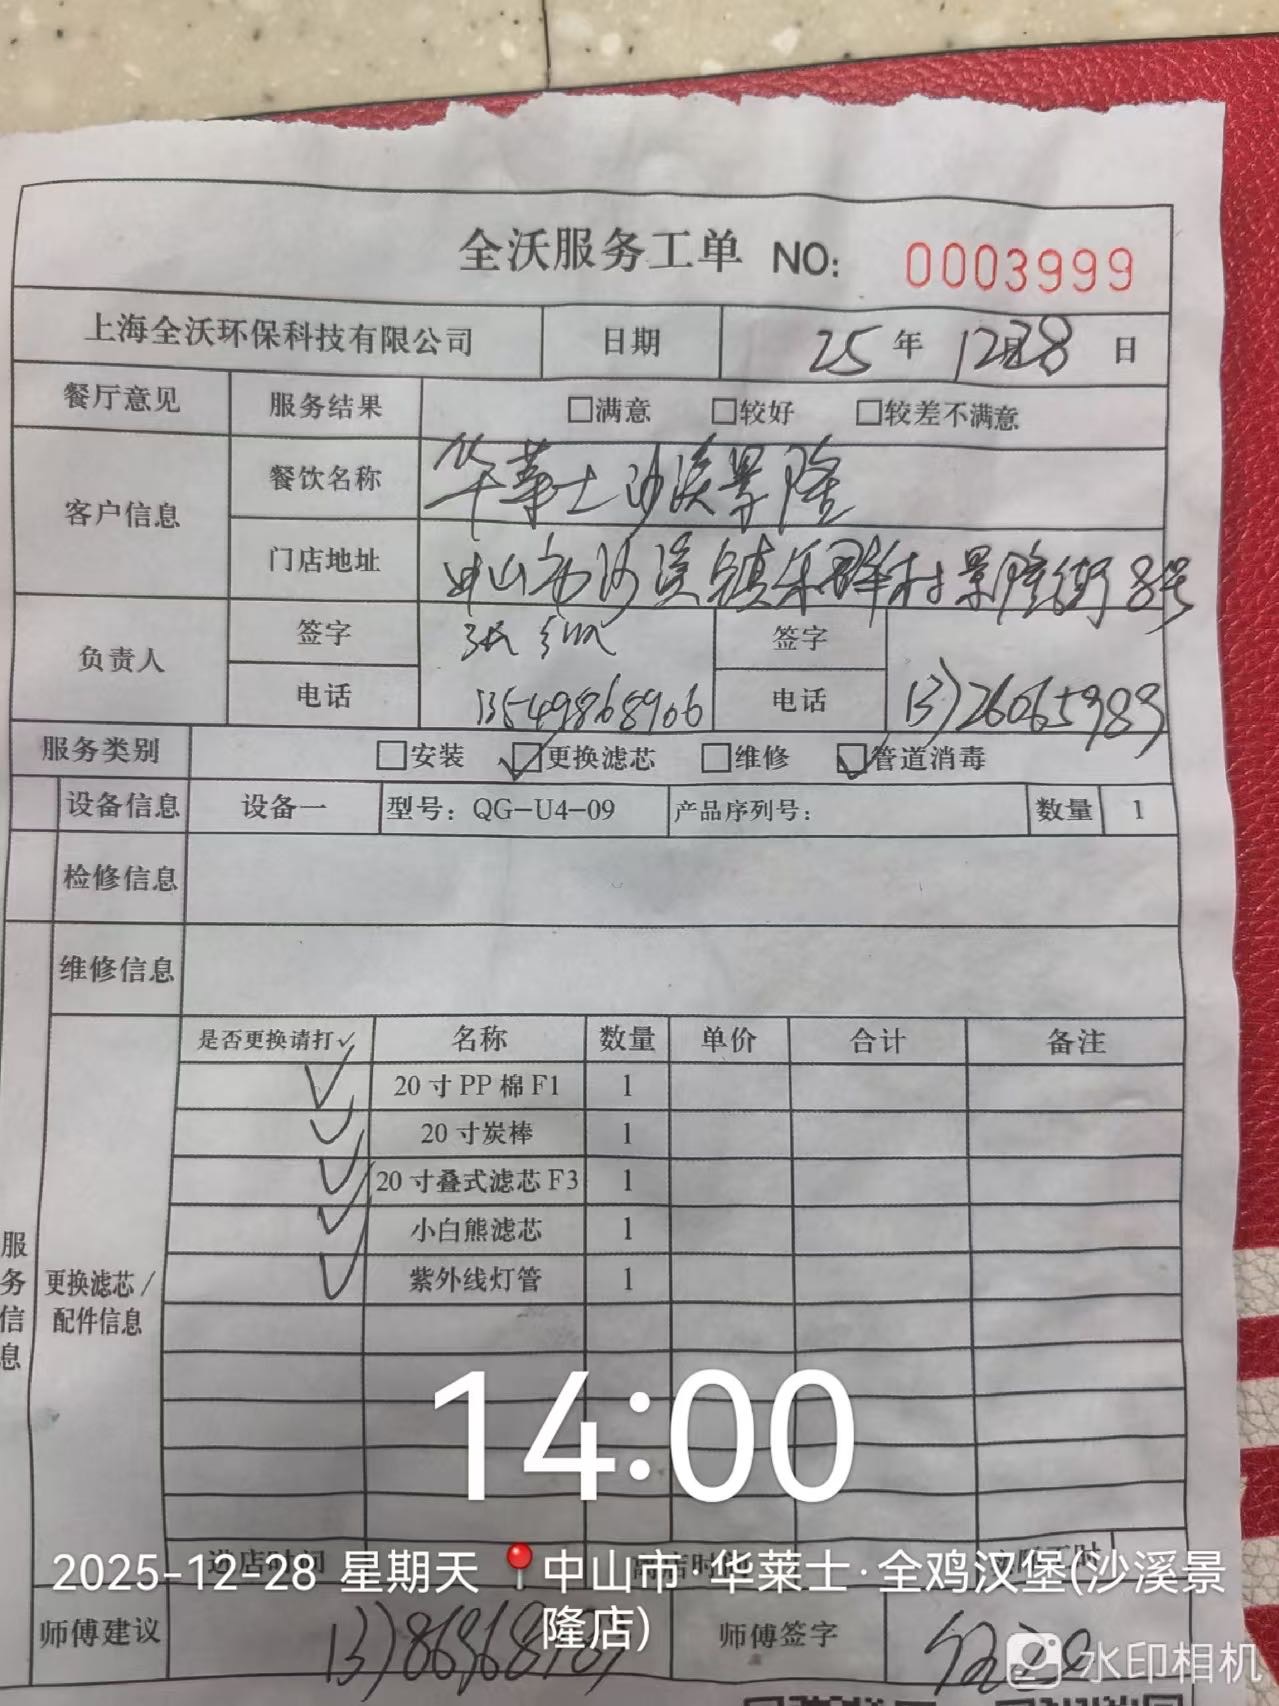 全沃服务工单 NO: 0003999
上海全沃环保科技有限公司 日期 25 年 12月28 日
餐厅意见 服务结果 □满意 □较好 □较差不满意
客户信息 餐饮名称 华莱士沙溪景隆
门店地址 中山市沙溪镇乐群村景隆街8号
负责人 签字 签字
电话 13549868906 电话
服务类别 □安装 ☑更换滤芯 □维修 ☑管道消毒
设备信息 设备一 型号: QG-U4-09 产品序列号: 数量 1
检修信息
维修信息
服务信息
更换滤芯/配件信息
是否更换请打✓ 名称 数量 单价 合计 备注
✓ 20寸PP棉F1 1
✓ 20寸炭棒 1
✓ 20寸叠式滤芯F3 1
✓ 小白熊滤芯 1
✓ 紫外线灯管 1
14:00
进店时间 离店时间
2025-12-28 星期天 中山市·华莱士·全鸡汉堡(沙溪景
隆店)
师傅建议 师傅签字
水印相机